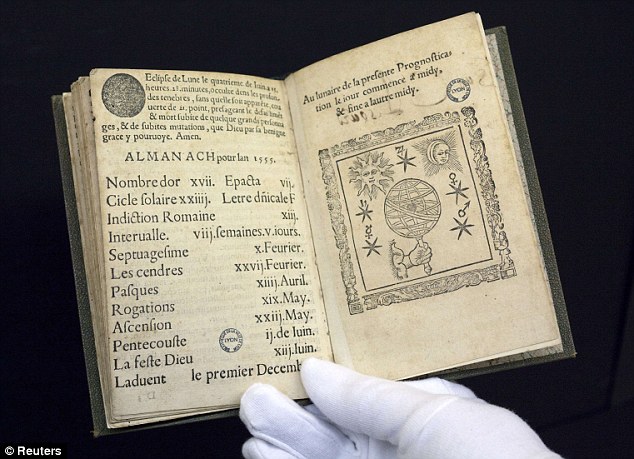 Eclipse de Lune le quatrieme de Iuin a 15.
heures. 21. minutes, occulte dans les profun.
des tenebres, sans quelle soit apparẽte, cou
uerte de 21. point, presageant le desai
& mort subite de quelque grands personna
ges, & de subites mutations, que Dieu par sa benigne
grace y pouruoye. Amen.
ALMANACH pour lan 1555.
Nombre dor xvij. Epacta vij.
Cicle solaire xxiiij. Letre dñicale F
Indiction Romaine xiij.
Interualle. viij. semaines. v. iours.
Septuagesime x. Feurier.
Les cendres xxvij. Feurier.
Pasques xiiij. Auril.
Rogations xix. May.
Ascension xxiij. May.
Pentecouste ij. de Iuin.
La feste Dieu xiij. Iuin.
Laduent le premier Decemb
LYON
Au lunaire de la presente Prognostica-
tion le iour commence a midy,
& fine a lautre midy.
LYON
© Reuters